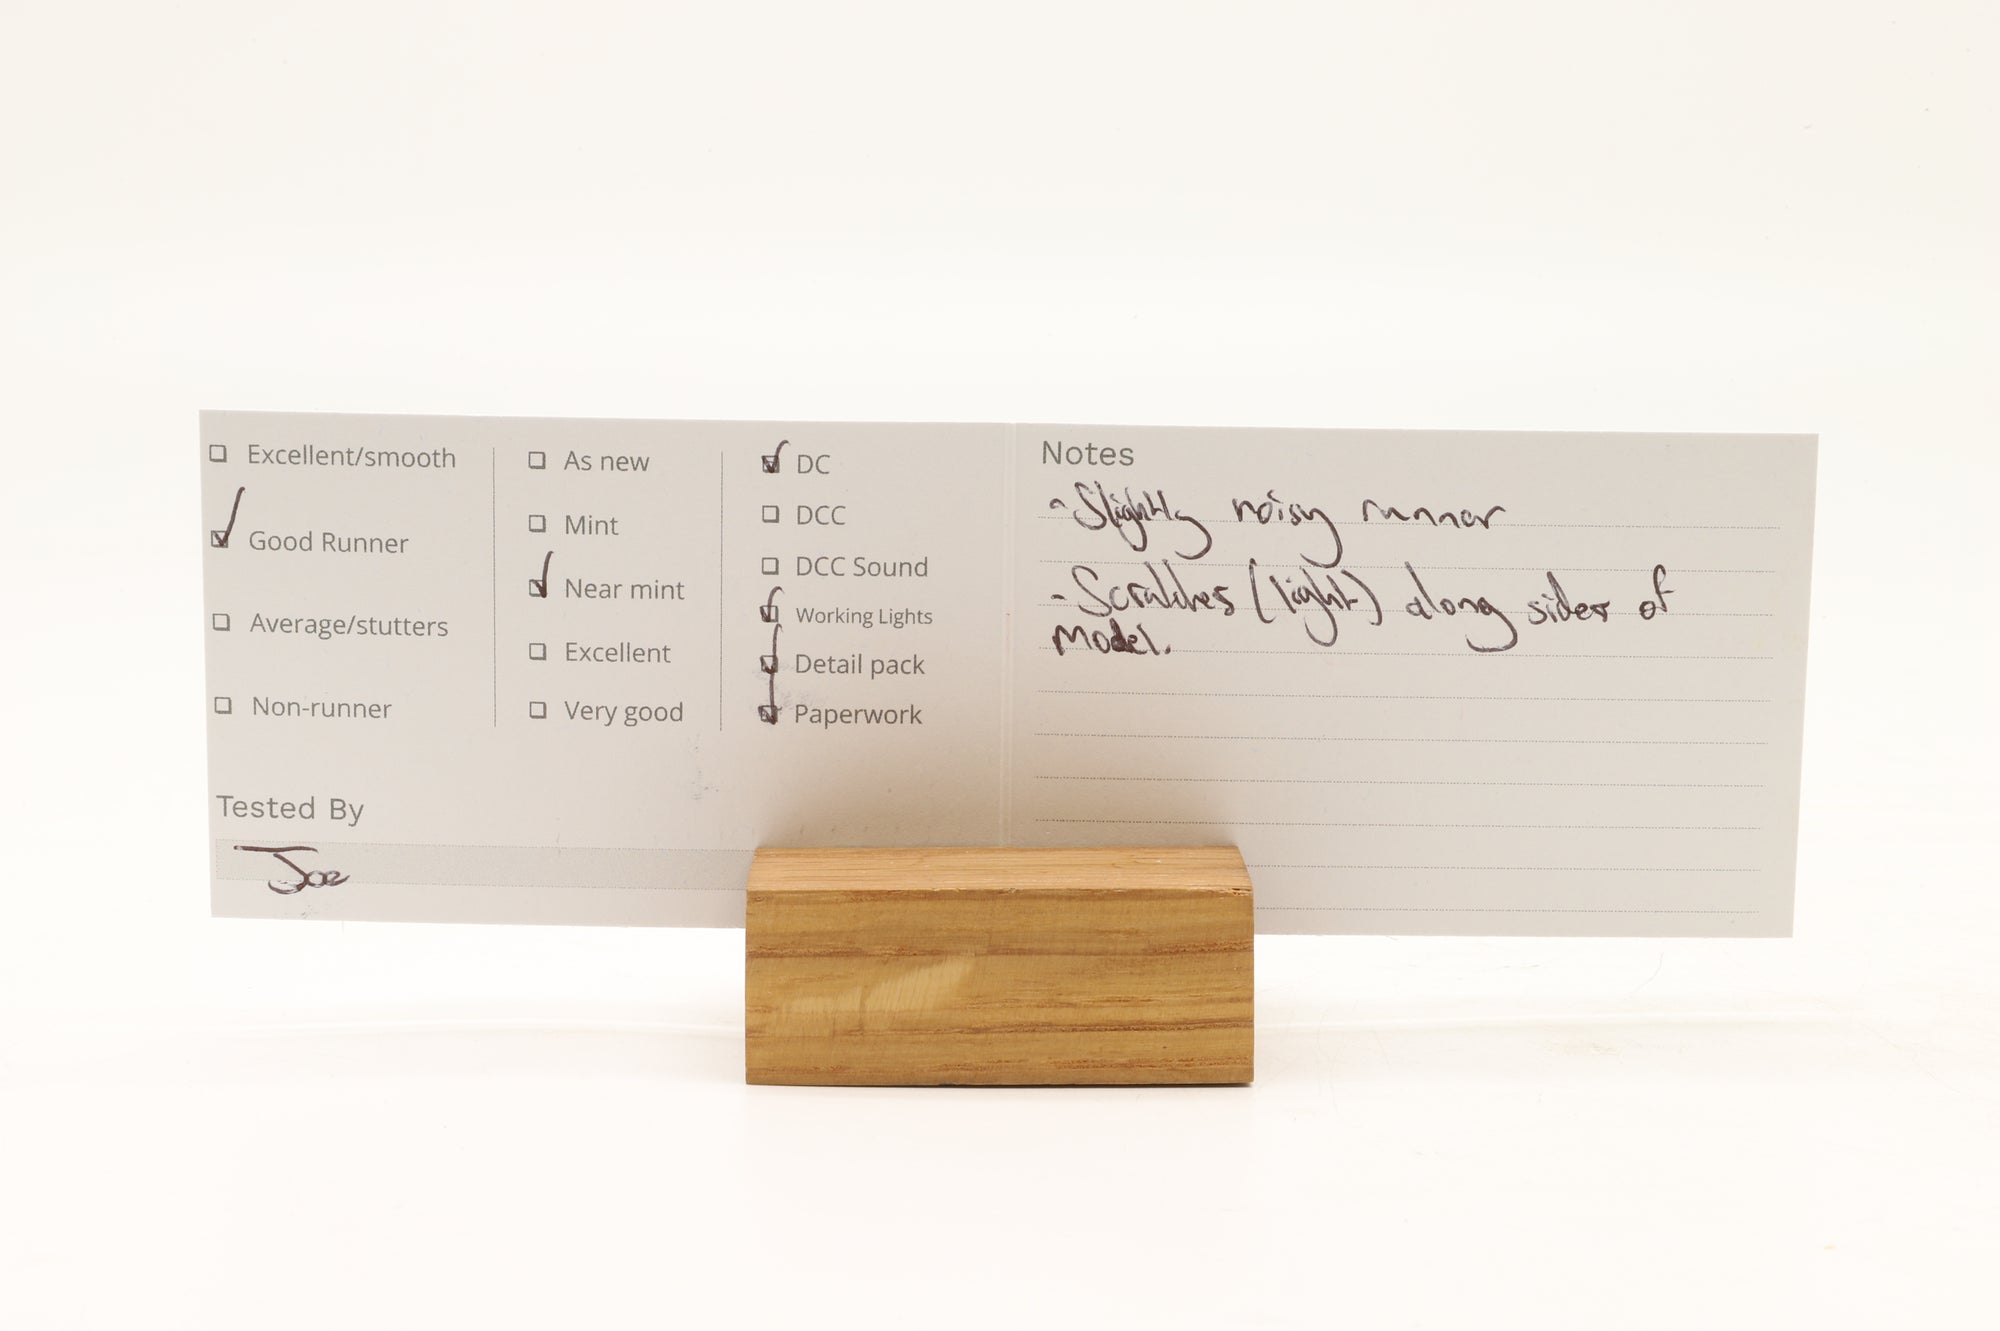 Excellent/smooth
Good Runner
Average/stutters
Non-runner
As new
Mint
Near mint
Excellent
Very good
DC
DCC
DCC Sound
Working Lights
Detail pack
Paperwork
Tested By
Joe
Notes
- Slightly noisy runner
- Scratches (light) along sides of
model.